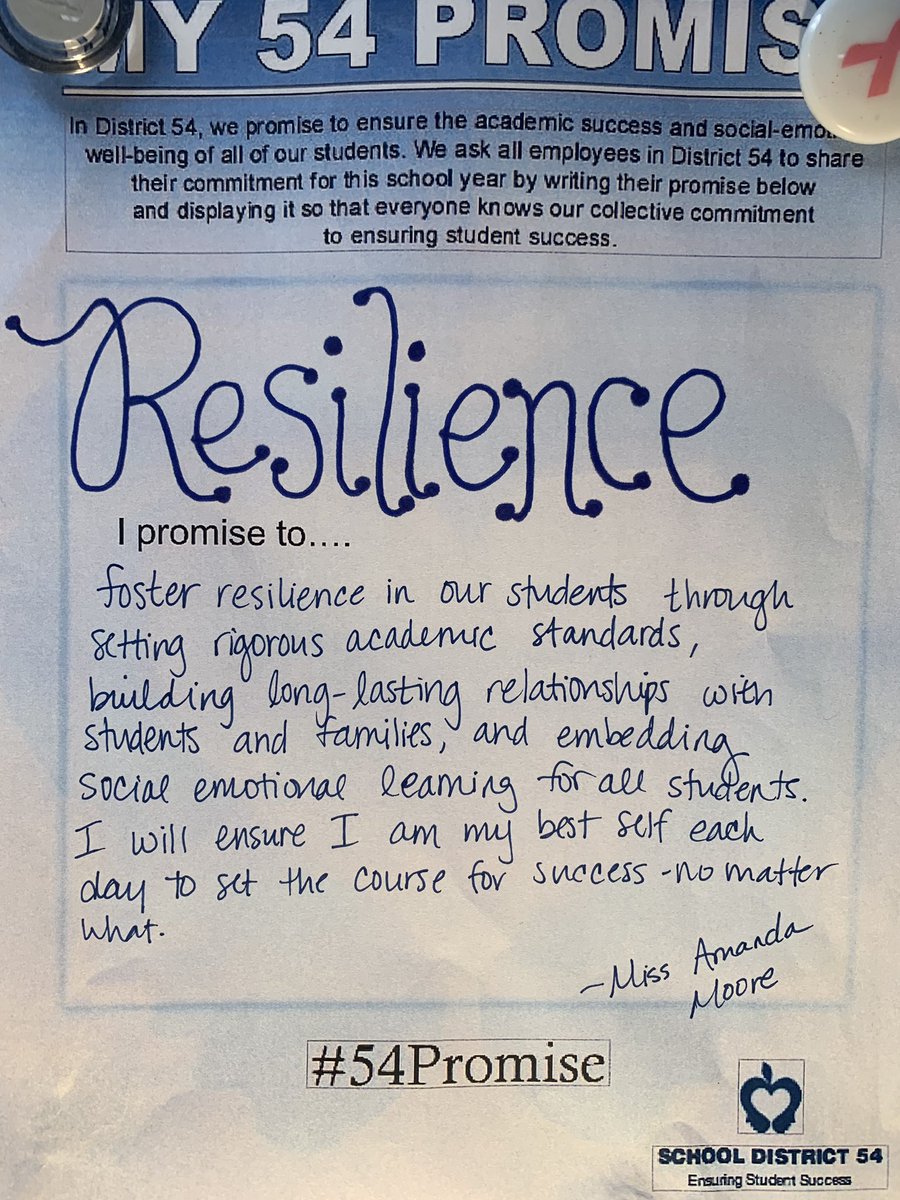 MY 54 PROMIS
In District 54, we promise to ensure the academic success and social-emo
well-being of all of our students. We ask all employees in District 54 to share
their commitment for this school year by writing their promise below
and displaying it so that everyone knows our collective commitment
to ensuring student success.
Resilience
I promise to....
foster resilience in our students through
setting rigorous academic standards,
building long-lasting relationships with
students and families, and embedding
social emotional learning for all students.
I will ensure I am my best self each
day to set the course for success - no matter
what.
- Miss Amanda
Moore
#54Promise
SCHOOL DISTRICT 54
Ensuring Student Success